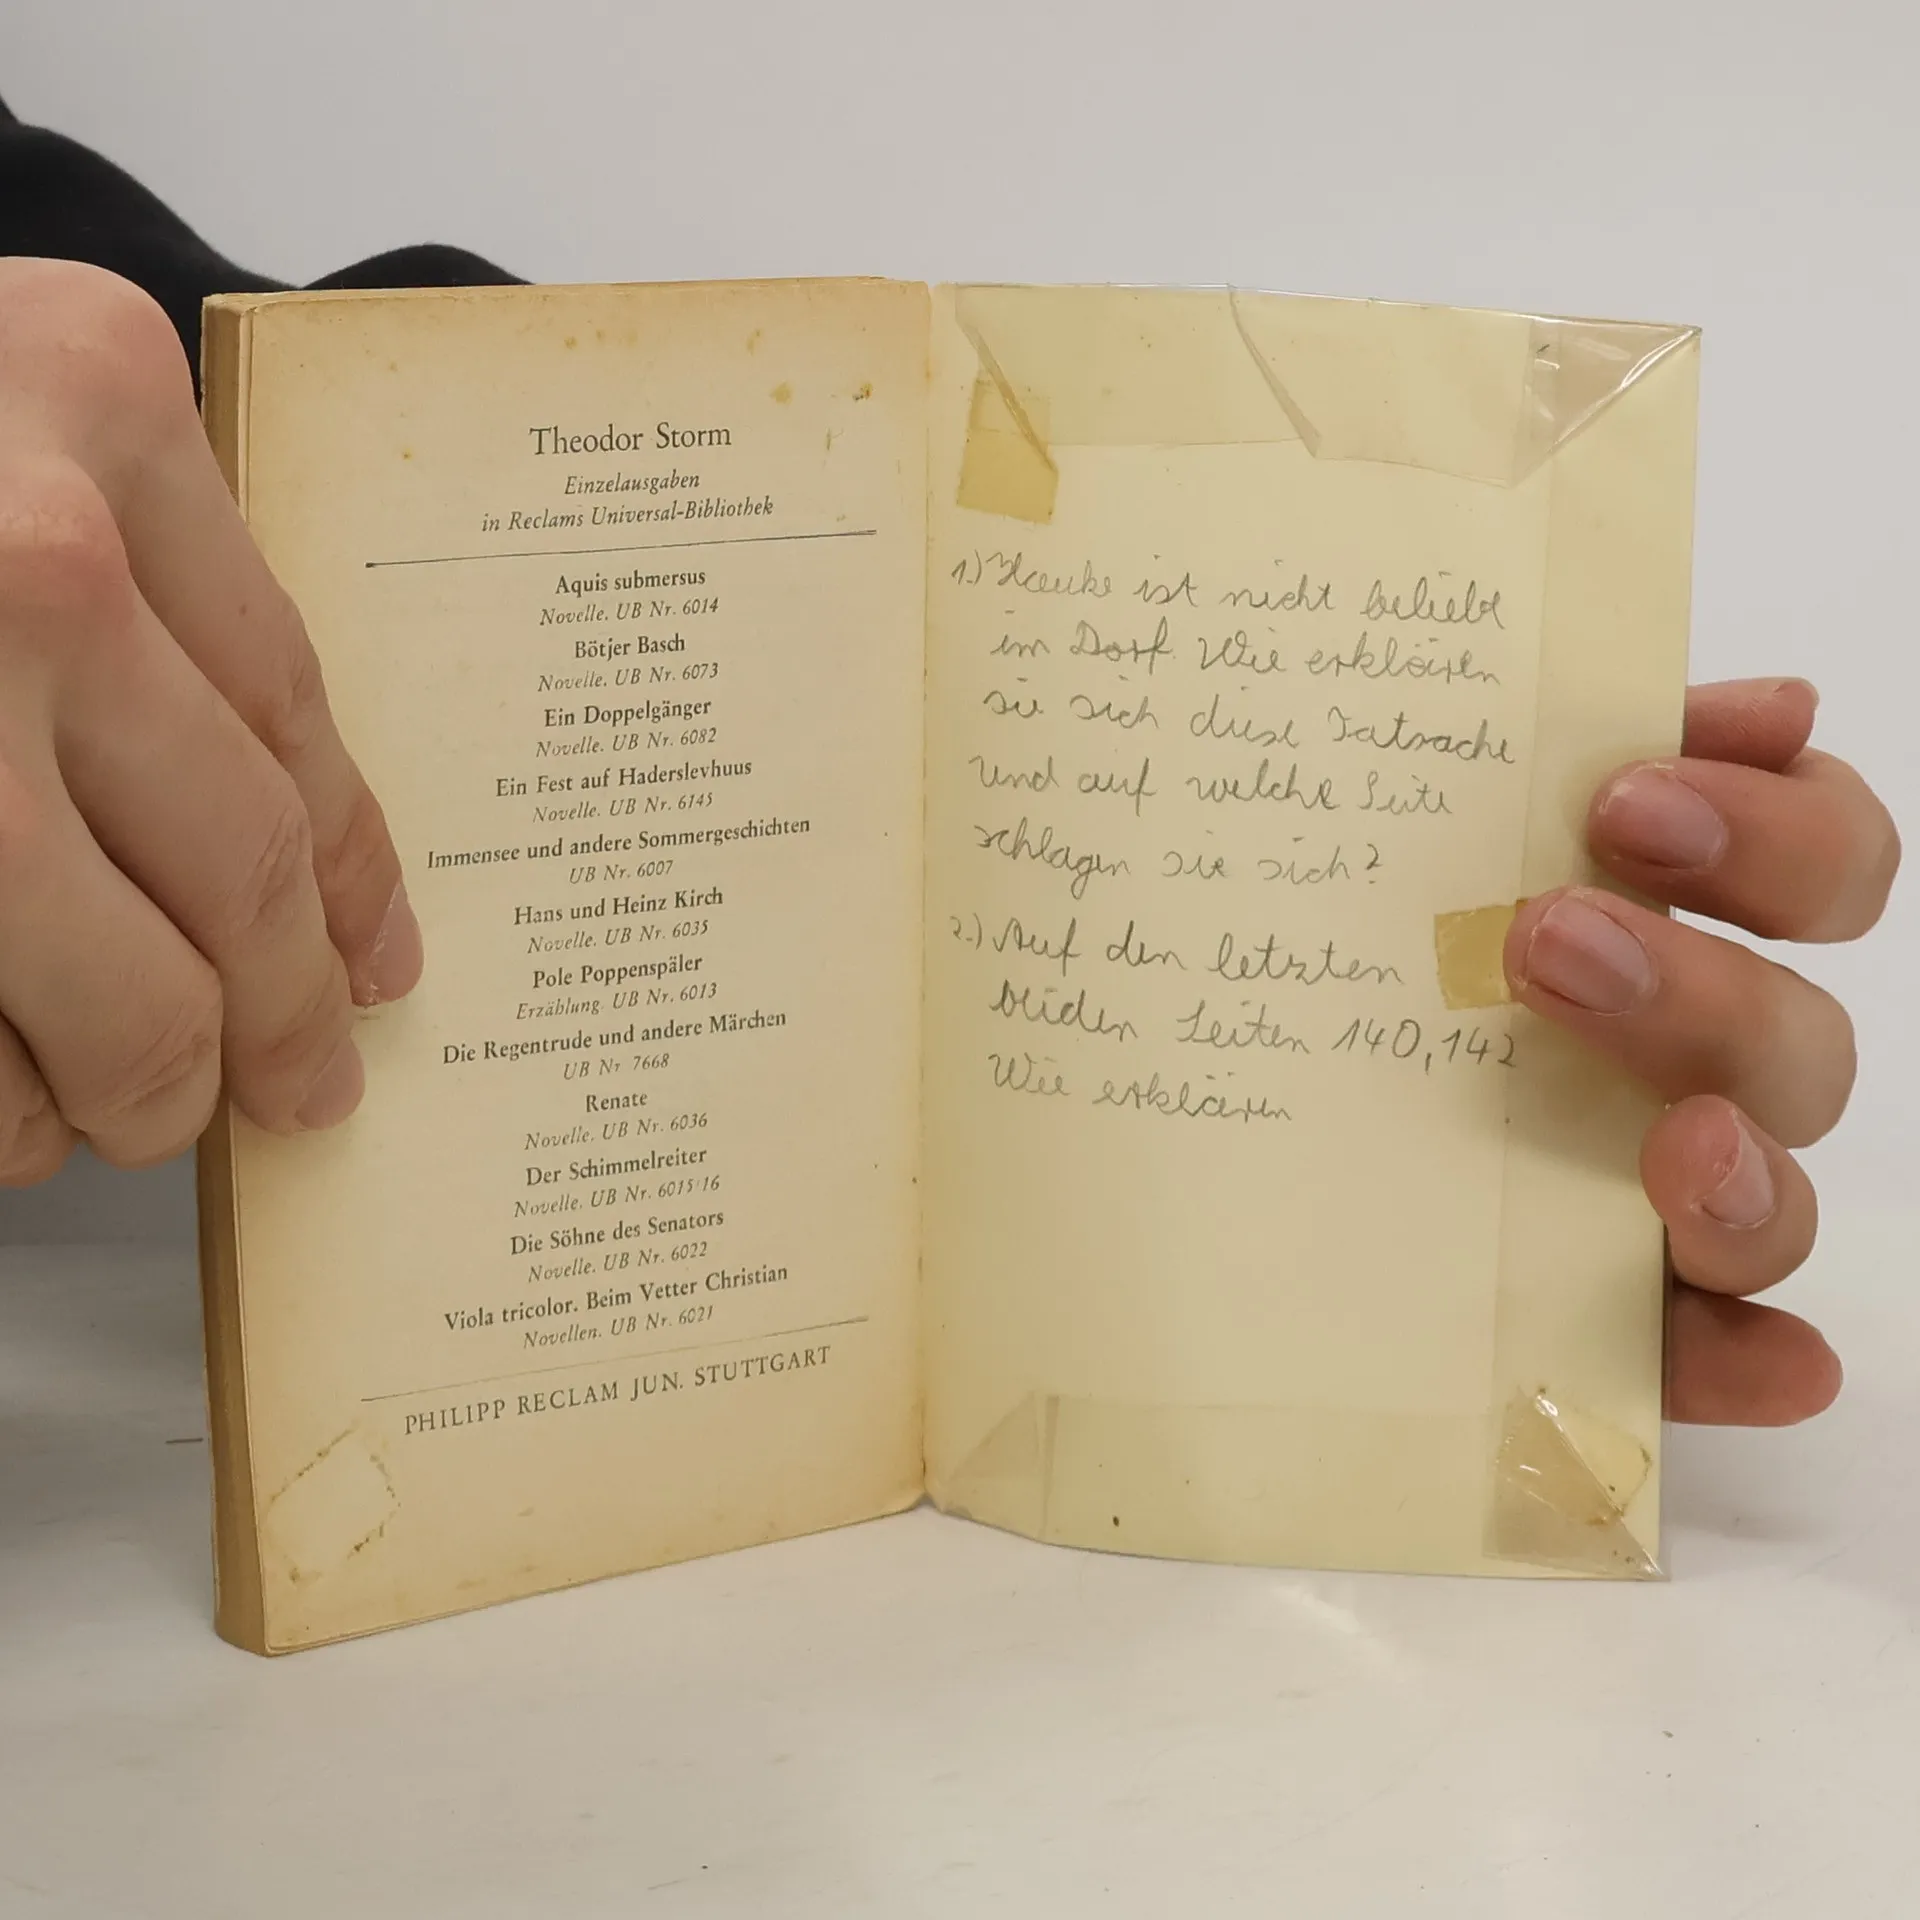 Theodor Storm
Einzelausgaben
in Reclams Universal-Bibliothek
Aquis submersus
Novelle. UB Nr. 6014
Bötjer Basch
Novelle. UB Nr. 6073
Ein Doppelgänger
Novelle. UB Nr. 6082
Ein Fest auf Haderslevhuus
Novelle. UB Nr. 6145
Immensee und andere Sommergeschichten
UB Nr. 6007
Hans und Heinz Kirch
Novelle. UB Nr. 6035
Pole Poppenspäler
Erzählung. UB Nr. 6013
Die Regentrude und andere Märchen
UB Nr 7668
Renate
Novelle. UB Nr. 6036
Der Schimmelreiter
Novelle. UB Nr. 6015/16
Die Söhne des Senators
Novelle. UB Nr. 6022
Viola tricolor. Beim Vetter Christian
Novellen. UB Nr. 6021
PHILIPP RECLAM JUN. STUTTGART
1.) Hauke ist nicht beliebt
im Dorf. Wie erklären
sie sich diese Tatsache
und auf welche Seite
schlagen sie sich?
2.) Auf den letzten
beiden Seiten 140, 142
Wie erklären